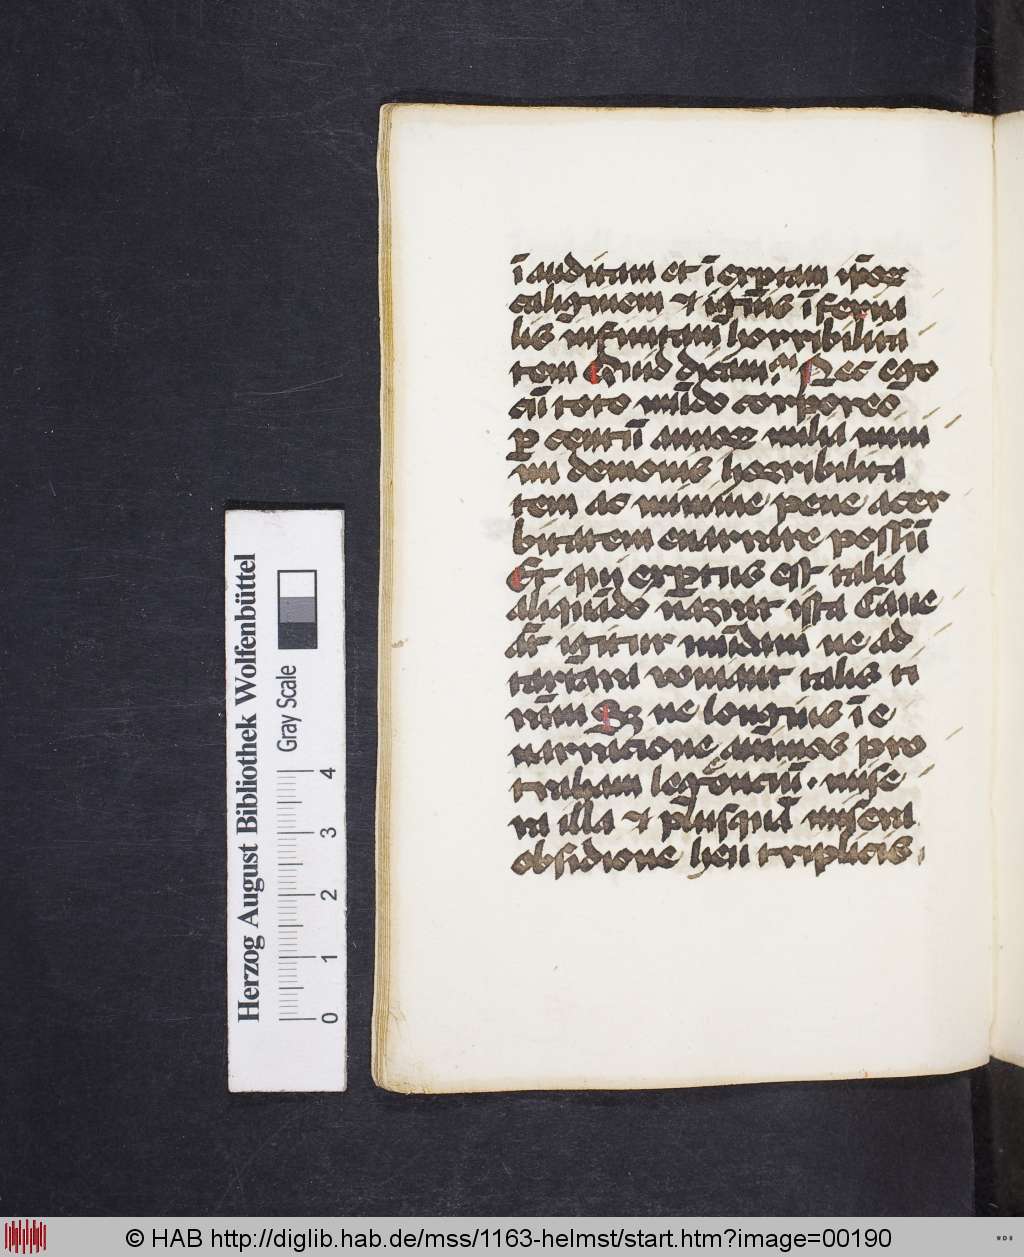 ī auditam et ī expertam ip̄oꝝ
caliginem ⁊ igīus ī ferna
lis infinitam horribilita
tem Quid dicam Nec ego
cū toto mūdo corporeo
ꝑ centū annoꝝ milia mini
mi demonis horribilita
tem ac minime pene acer
bitatem enarrare possū
Et qui exꝑtus est talia
aliquādo narrat ista Caue
igitur ne ad
tartara veniant talis
Sꝫ ne longius ī e
narracione aīmos pro
traham legēnciū · mise
ra illa ⁊ plusquā misera
obsidione heu triplicis
Herzog August Bibliothek Wolfenbüttel
Gray Scale
0 1 2 3 4
© HAB http://diglib.hab.de/mss/1163-helmst/start.htm?image=00190